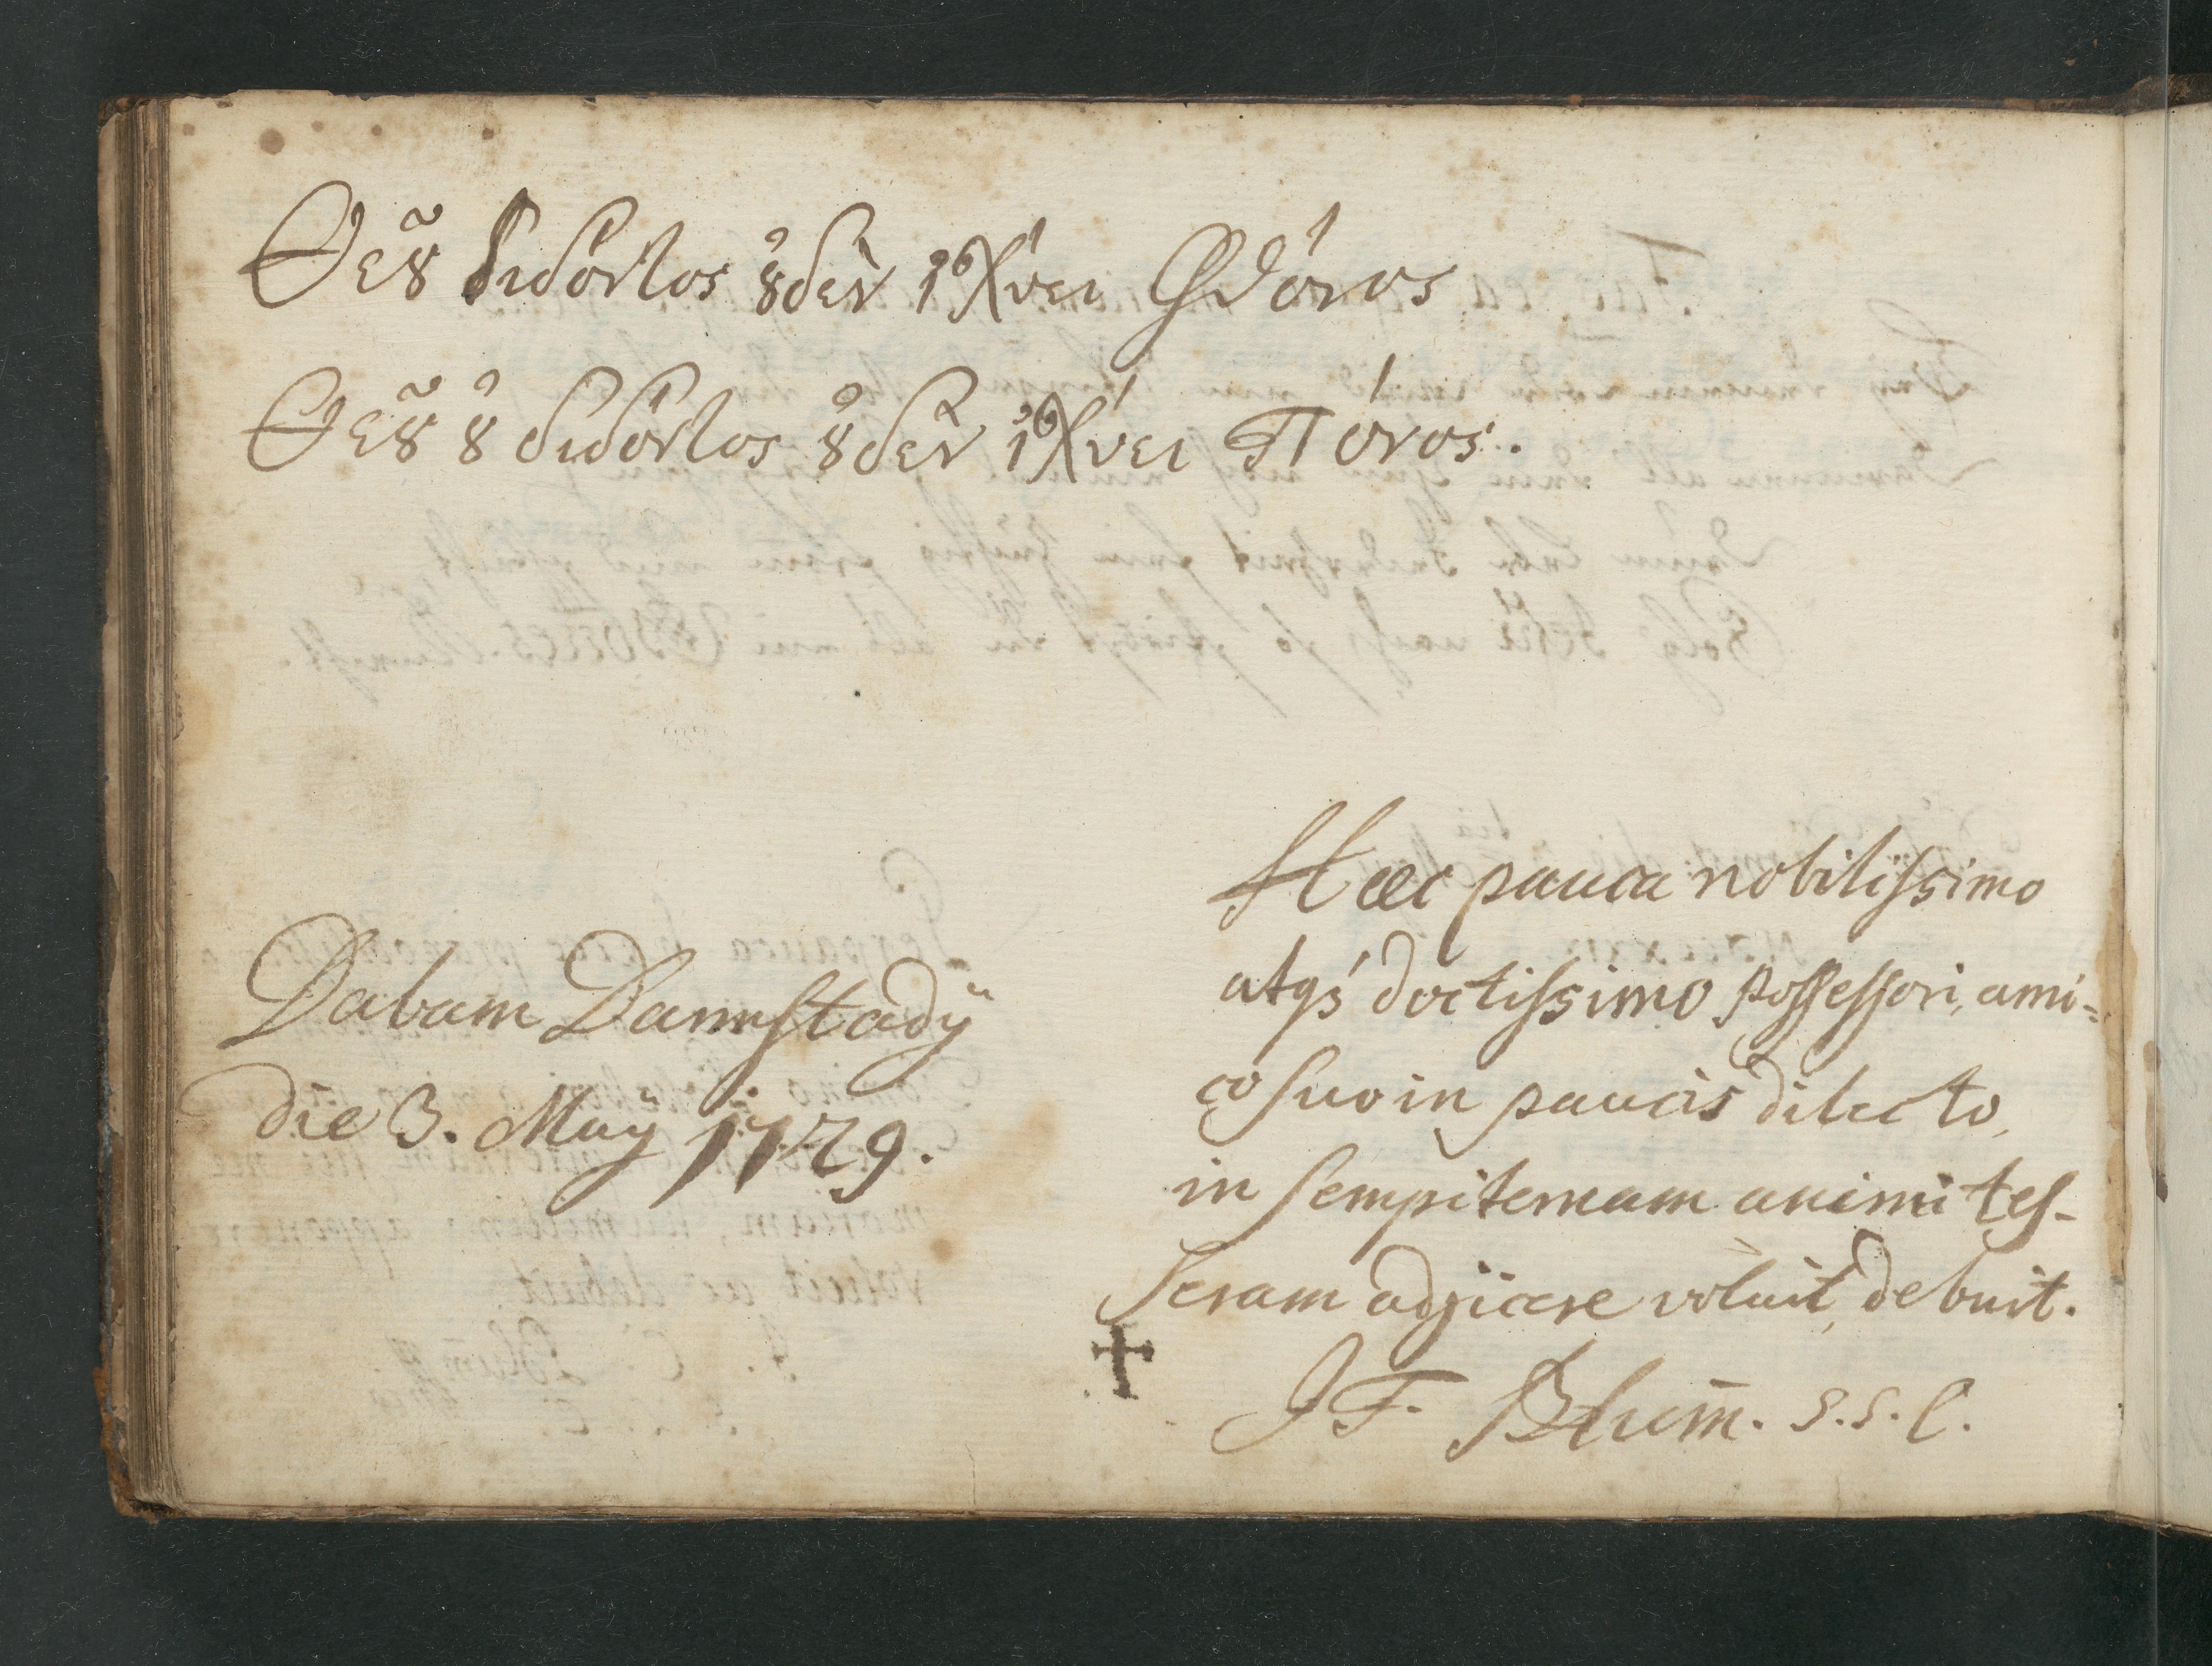 Θεȣ͂ διδόντος ȣ̓δὲν ἰσχύει Φθόνος
Θεȣ͂ ȣ̓ διδόντος ȣ̓δὲν ἰσχύει Πόνος.
Dabam Darmstadÿ
die 3. Maÿ 1729.
Haec pauca nobilissimo
atqꝫ doctissimo possessori, ami=
co suo in paucis dilecto,
in sempiternam animi tes-
seram adjicere voluit, debuit.
J F. Blum̄. S. S. C.